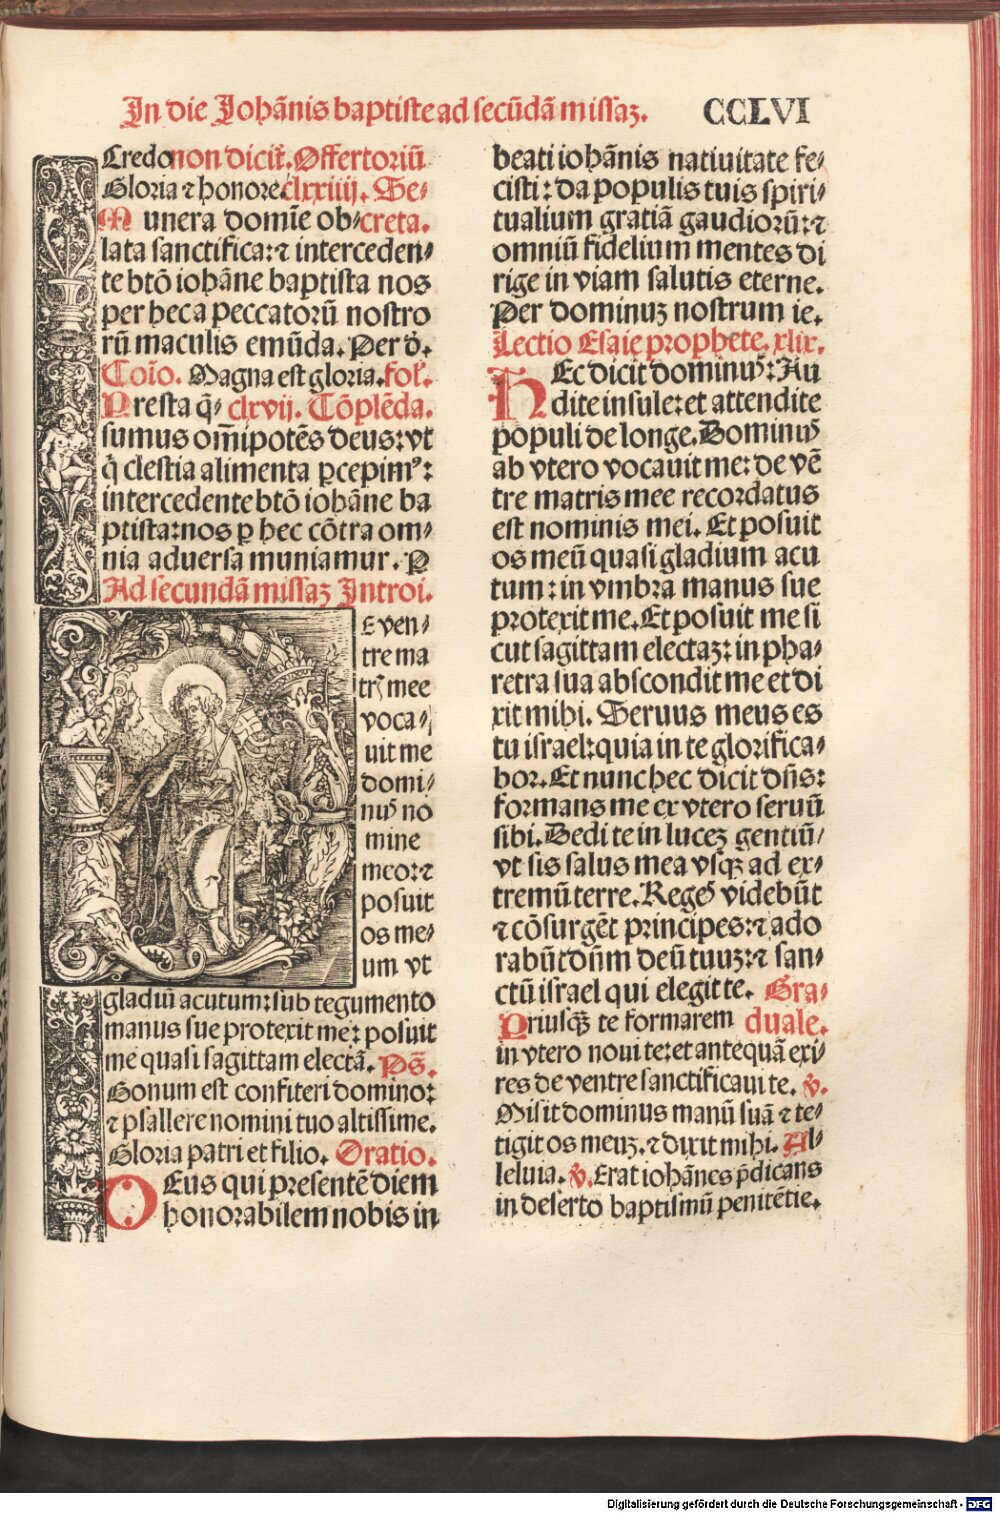 In die Johãnis baptiste ad secũdã missaꝫ. CCLVI
Credo non dicit̃. Offertoriũ
Gloria ⁊ honore. clxxiiij. Se⸗
Munera domĩe ob⸗creta.
lata sanctifica: ⁊ interceden⸗
te btõ iohãne baptista nos
per hec a peccatorũ nostro
rũ maculis emũda. Per dõ.
Coĩo. Magna est gloria. fol.
Presta q̃⸗ clxvij. Cõplẽda.
sumus om̃ipotẽs deus: vt
q̃ clestia alimenta ꝑcepimꝰ:
intercedente btõ iohãne ba
ptista: nos ꝑ hec cõtra om⸗
nia aduersa muniamur. P
Ad secundã missaꝫ Introi.
E ven⸗
tre ma
tr̃ mee
voca⸗
uit me
domi⸗
nuꝰ no
mine
meo: ⁊
posuit
os me⸗
um vt
gladiũ acutum: sub tegumento
manus sue protexit me: posuit
me quasi sagittam electã. Ps̃.
Bonum est confiteri domino:
⁊ psallere nomini tuo altissime.
Gloria patri et filio. Oratio.
DEus qui presentẽ diem
honorabilem nobis in
beati iohãnis natiuitate fe⸗
cisti: da populis tuis spiri⸗
tualium gratiã gaudiorũ: ⁊
omniũ fidelium mentes di
rige in viam salutis eterne.
Per dominuꝫ nostrum ie.
Lectio Esaie prophete. xlix.
HEc dicit dominuꝰ: Au
dite insule: et attendite
populi de longe. Dominuꝰ
ab vtero vocauit me: de vẽ
tre matris mee recordatus
est nominis mei. Et posuit
os meũ quasi gladium acu
tum: in vmbra manus sue
protexit me. Et posuit me si
cut sagittam electaꝫ: in pha⸗
retra sua abscondit me et di
xit mihi. Seruus meus es
tu israel: quia in te glorifica⸗
bor. Et nunc hec dicit dñs:
formans me ex vtero seruũ
sibi. Dedi te in luceꝫ gentiũ⸗
vt sis salus mea vsqꝫ ad ex⸗
tremũ terre. Regeꝰ videbũt
⁊ cõsurgẽt principes: ⁊ ado
rabũt dñm deũ tuuꝫ: ⁊ san⸗
ctũ israel qui elegit te. Gra⸗
Priusqꝫ te formarem duale.
in vtero noui te: et antequã exi⸗
res de ventre sanctificaui te. ℣.
Misit dominus manũ suã ⁊ te⸗
tigit os meuꝫ. ⁊ dixit mihi. Al⸗
leluia. ℣. Erat iohãnes p̃dicans
in deserto baptismũ penitẽtie.
Digitalisierung gefördert durch die Deutsche Forschungsgemeinschaft - DFG